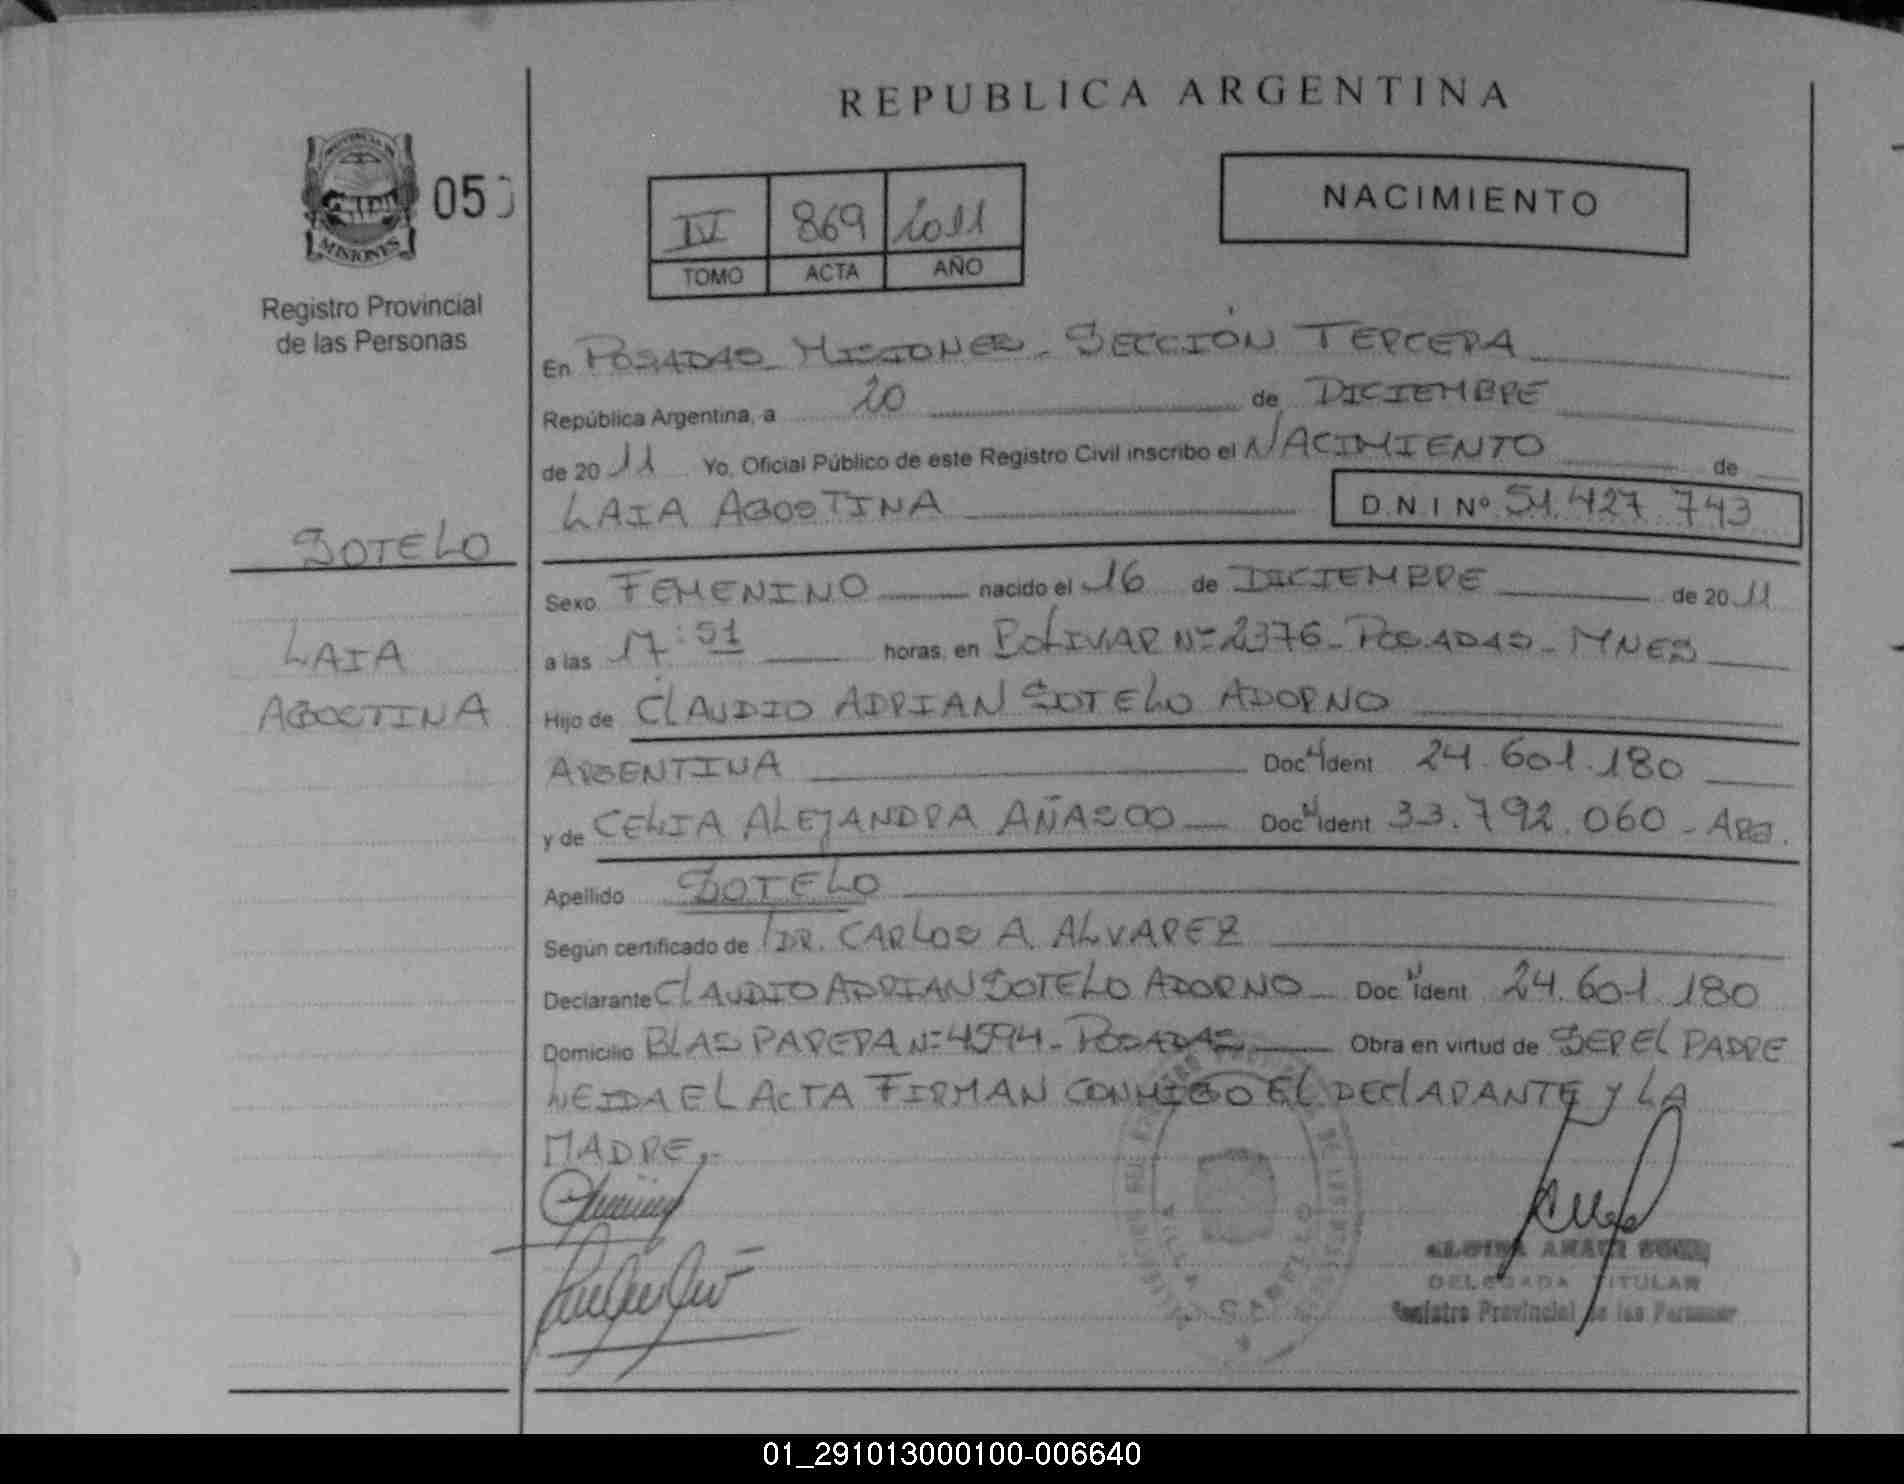 REPUBLICA ARGENTINA
PROVINCIA DE
MISIONES
05
Registro Provincial
de las Personas
IV 869 2011
TOMO ACTA AÑO
NACIMIENTO
En POSADAS MISIONES - SECCIÓN TERCERA
República Argentina, a 20 de DICIEMBRE
de 2011 Yo, Oficial Público de este Registro Civil inscribo el NACIMIENTO de
LAIA AGOSTINA D.N.I Nº 51.427.743
SOTELO
LAIA
AGOSTINA
Sexo FEMENINO nacido el 16 de DICIEMBRE de 2011
a las 17:51 horas, en BOLIVAR Nº 2376 - POSADAS - MNES
Hijo de CLAUDIO ADRIAN SOTELO ADORNO
ARGENTINA Doc N Ident 24.601.180
y de CELIA ALEJANDRA AÑASCO Doc N Ident 33.792.060 - ARG.
Apellido SOTELO
Según certificado de DR. CARLOS A. ALVAREZ
Declarante CLAUDIO ADRIAN SOTELO ADORNO Doc N Ident 24.601.180
Domicilio BLAS PARERA Nº 4594 - POSADAS Obra en virtud de SER EL PADRE
LEIDA EL ACTA FIRMAN CONMIGO EL DECLARANTE Y LA
MADRE.-
DELEGADA TITULAR
Registro Provincial de las Personas
01_291013000100-006640